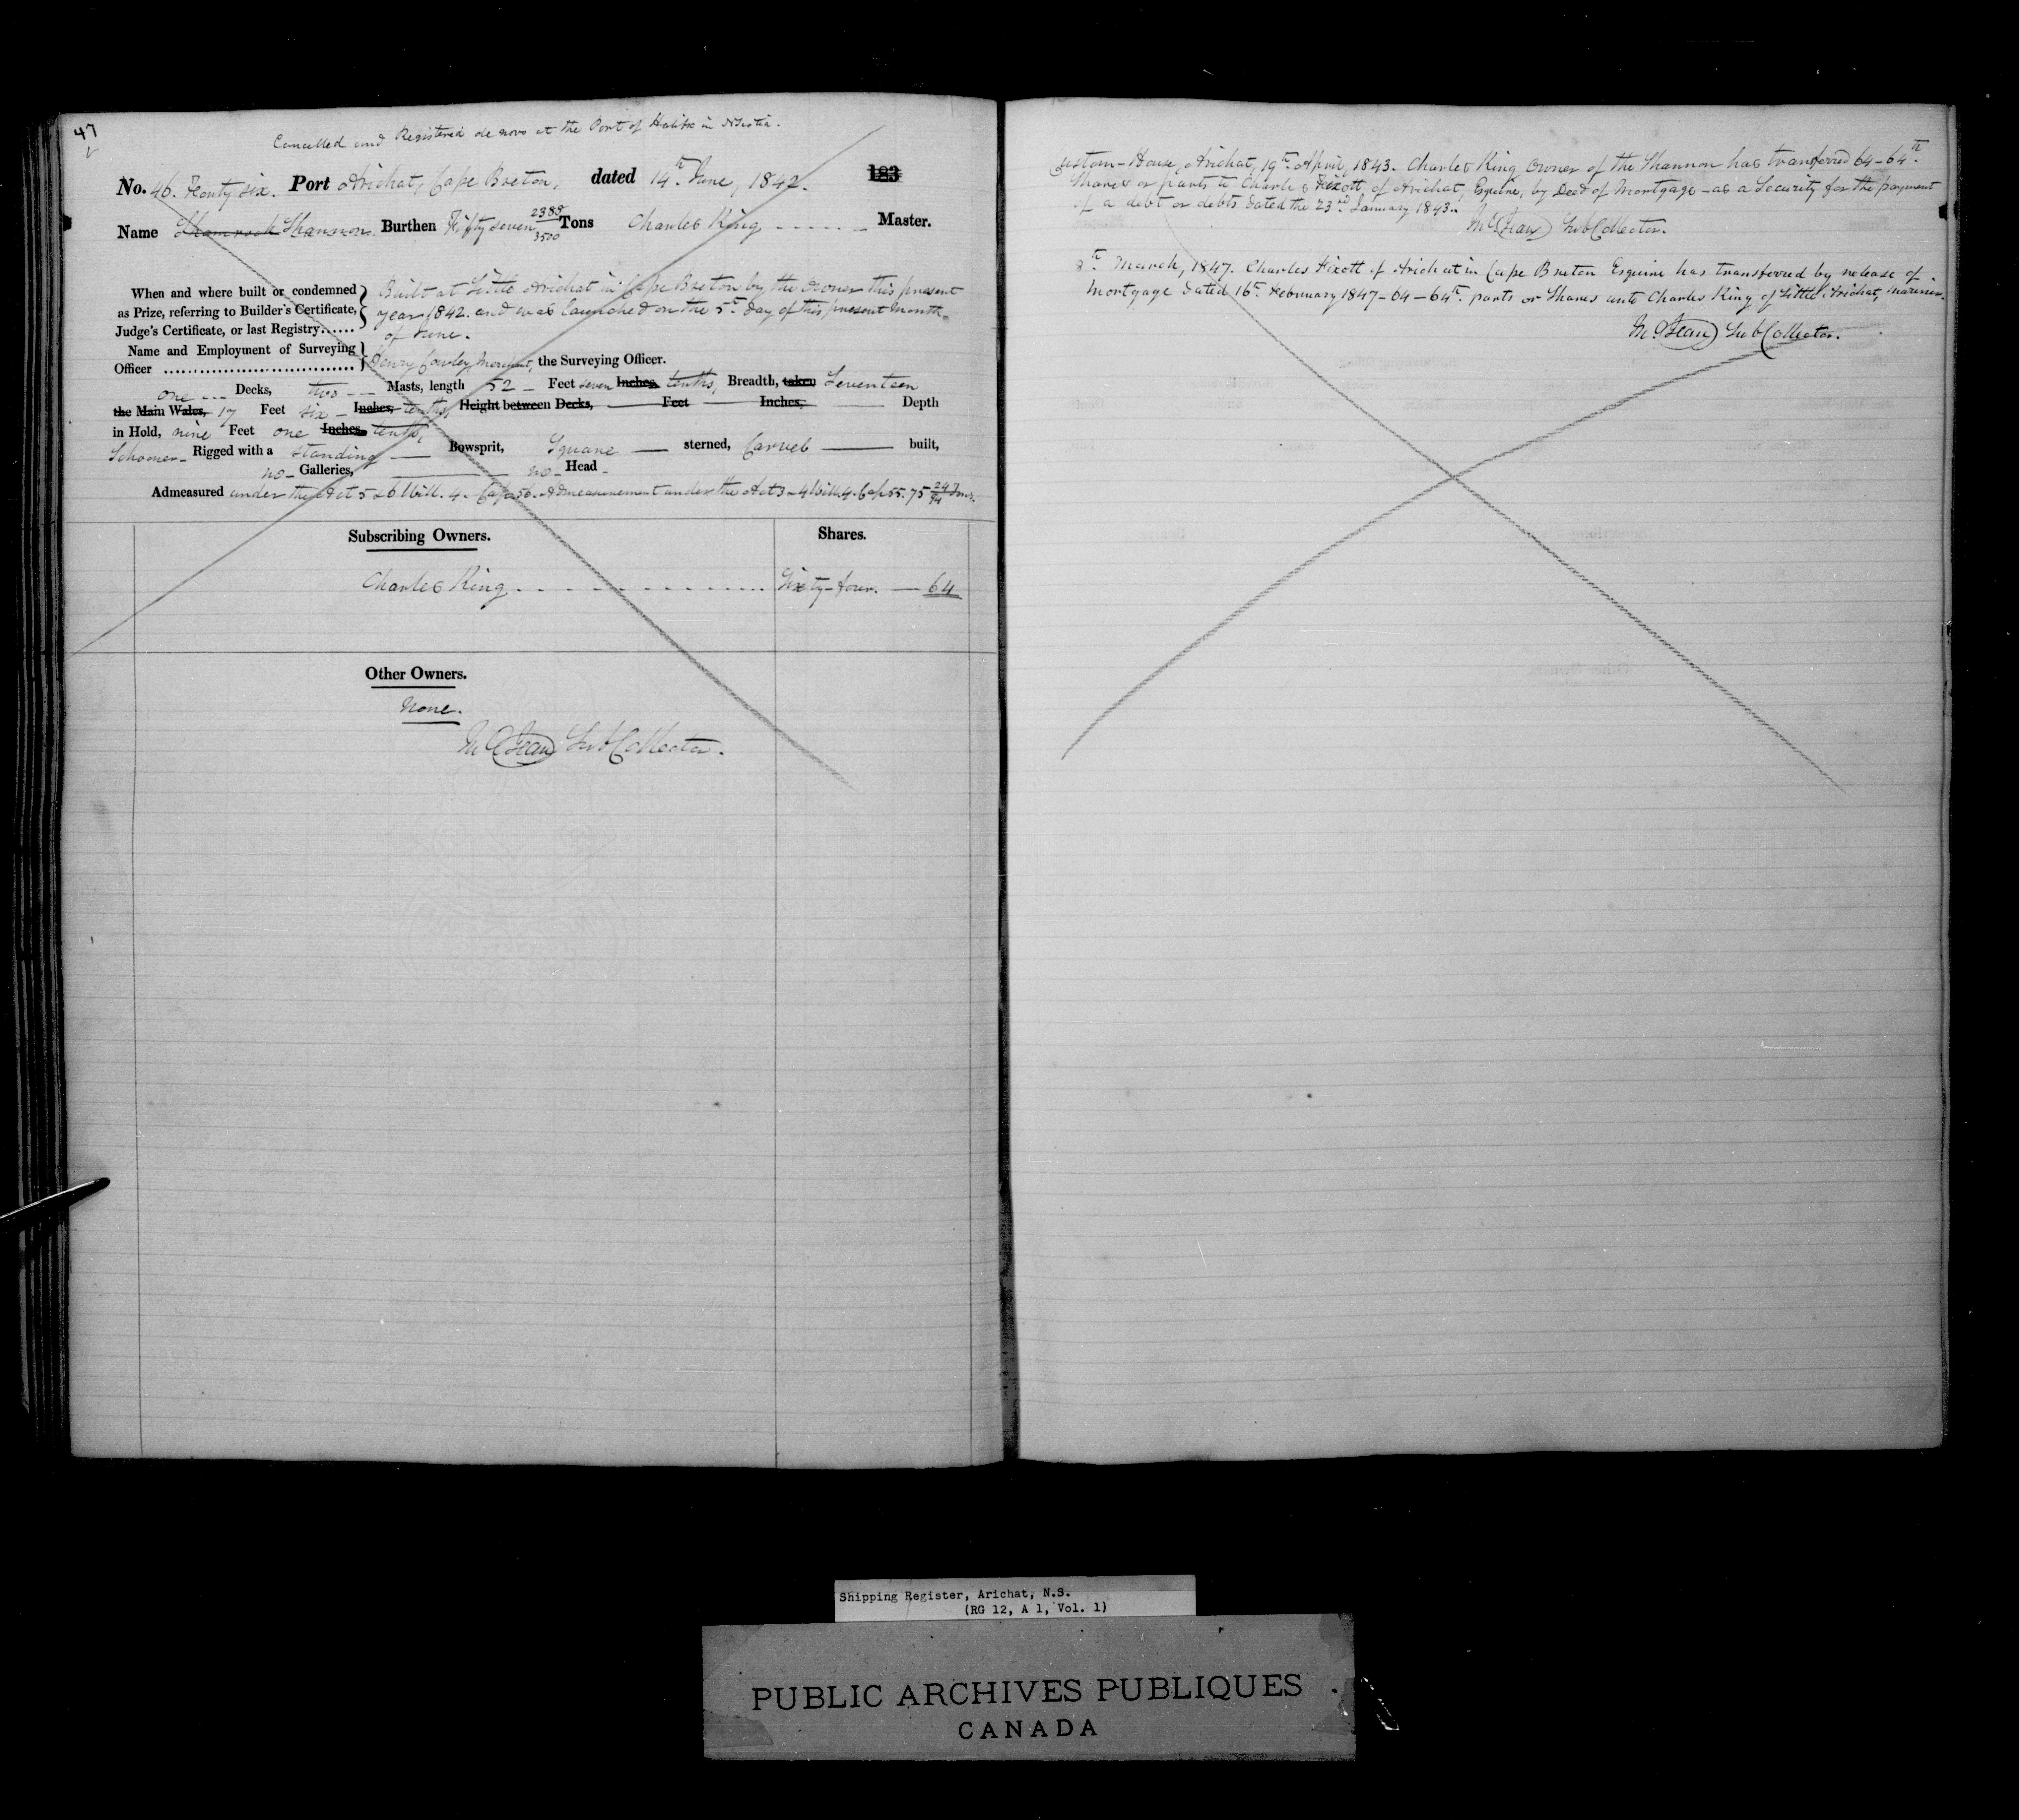 47
Cancelled and Registered de novo at the Port of Halifax in
No. 46. Forty six. Port Arichat, Cape Breton, dated 14th June, 1842. 183
Name Shamrock Shannon. Burthen Fifty seven 2388/3500 Tons Charles King Master.
When and where built or condemned
as Prize, referring to Builder's Certificate,
Judge's Certificate, or last Registry......
Built at Little Arichat in Cape Breton by the owner this present
year 1842. and was launched on the 5th day of this present Month
of June.
Name and Employment of Surveying
Officer
Henry Cowley, Merchant, the Surveying Officer.
one Decks, two Masts, length 52 Feet seven Inches, tenths, Breadth, taken Seventeen
the Main Wales, 17 Feet six Inches, tenths, Height between Decks, Feet Inches, Depth
in Hold, nine Feet one Inches, tenths,
Schooner Rigged with a standing Bowsprit, Square sterned, Carvel built,
no Galleries, no Head
Admeasured under the Act 5 & 6 Will. 4. Cap 56. Admeasurement under the Act 3 & 4 Will. 4. Cap 55. 75 24/94 Tons.
Subscribing Owners. Shares.
Charles King Sixty-four. 64
Other Owners.
None.
Sub Collector.
Custom-House, Arichat, 19th April, 1843. Charles King Owner of the Shannon has transferred 64-64th
Shares or parts to Charles Fixott, of Arichat, Esquire, by Deed of Mortgage as a Security for the payment
of a debt or debts dated the 23rd January 1843.
Sub Collector.
8th March, 1847. Charles Fixott of Arichat in Cape Breton Esquire has transferred by release of
Mortgage dated 16th February 1847 - 64-64th parts or Shares unto Charles King of Little Arichat, Mariner.
Sub Collector.
Shipping Register, Arichat, N.S.
(RG 12, A 1, Vol. 1)
PUBLIC ARCHIVES PUBLIQUES
CANADA